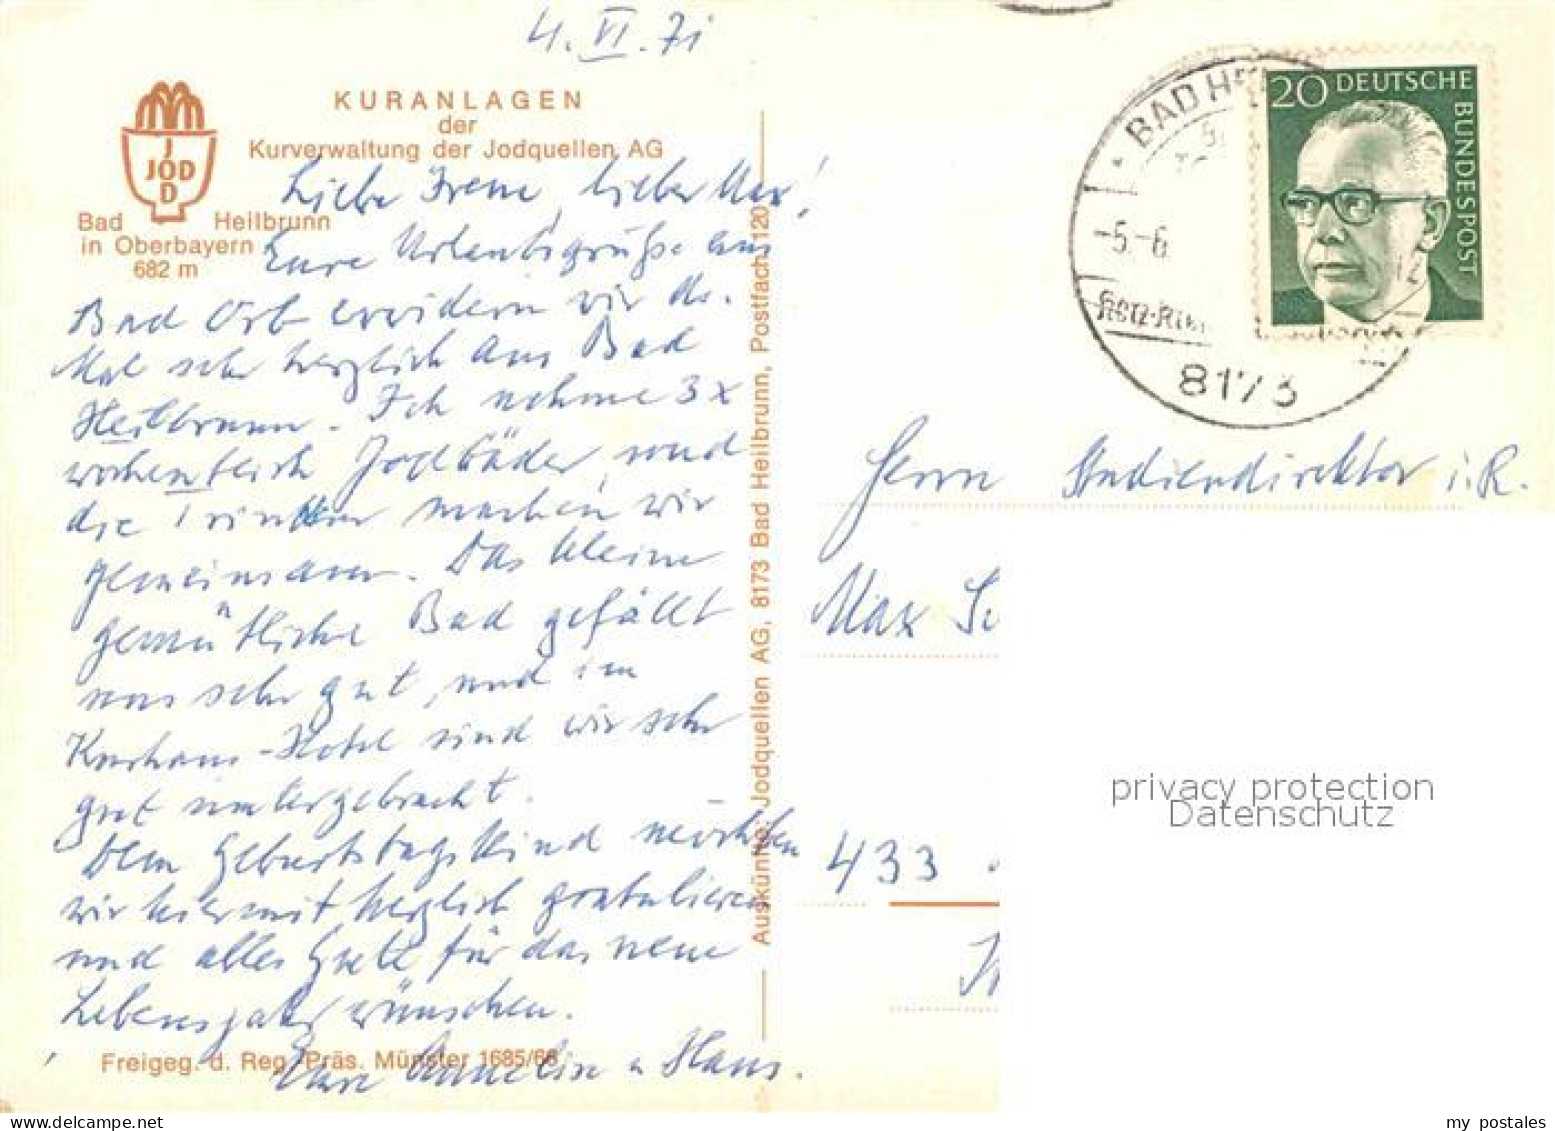 4. VI. 71
KURANLAGEN
der
Kurverwaltung der Jodquellen AG
JOD
JOD
Bad Heilbrunn
in Oberbayern
682 m
Liebe Irene, lieber Max!
Eure Urlaubsgrüße aus
Bad Orb erwidern wir ds.
Mal sehr herzlich aus Bad
Heilbrunn. Ich nehme 3x
wöchentlich Jodbäder, und
die Trinkkur machen wir
gemeinsam. Das kleine
gemütliche Bad gefällt
uns sehr gut, und im
Kurhaus-Hotel sind wir sehr
gut untergebracht.
Dem Geburtstagskind möchten
wir hiermit herzlich gratulieren
und alles Gute für das neue
Lebensjahr wünschen.
Eure Annelise u Hans.
Freigeg. d. Reg. Präs. Münster 1685/66
Auskünfte: Jodquellen AG, 8173 Bad Heilbrunn, Postfach 120
BAD HEI
-5.-6
8173
20 DEUTSCHE BUNDESPOST
Herrn Studiendirektor i.R.
Max
433
privacy protection
Datenschutz
my postales